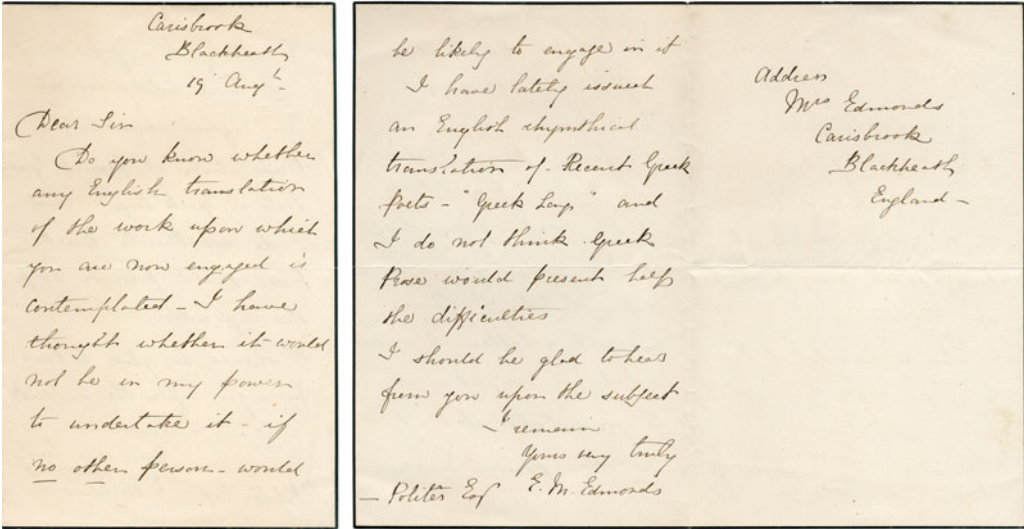 Carisbrook
Blackheath
19 Augt -
Dear Sir
Do you know whether
any English translation
of the work upon which
you are now engaged is
contemplated - I have
thought whether it would
not be in my power
to undertake it - if
no other person - would
be likely to engage in it
I have lately issued
an English rhymthical
translation of Recent Greek
Poets - "Greek Lays" and
I do not think Greek
Prose would present half
the difficulties
I should be glad to hear
from you upon the subject
- I remain
Yours very truly
E. M. Edmonds
- Polites Esq
Address
Mrs Edmonds
Carisbrook
Blackheath
England -